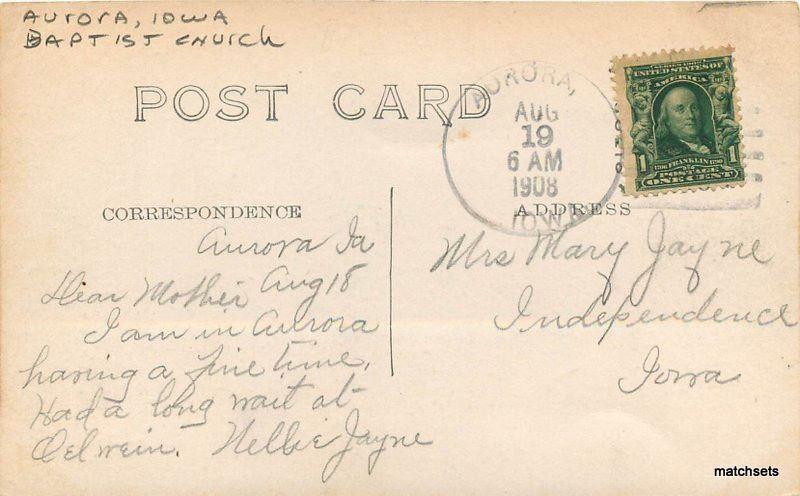 AURORA, IOWA
BAPTIST CHURCH
POST CARD
AURORA,
AUG
19
6 AM
1908
IOWA
SERIES 1902
UNITED STATES OF
AMERICA
1706 FRANKLIN 1790
POSTAGE
1 ONE CENT 1
CORRESPONDENCE
ADDRESS
Aurora Ia
Aug 18
Dear Mother
I am in Aurora
having a fine time.
Had a long wait at
Oelwein. Nellie Jayne
Mrs Mary Jayne
Independence
Iowa
matchsets